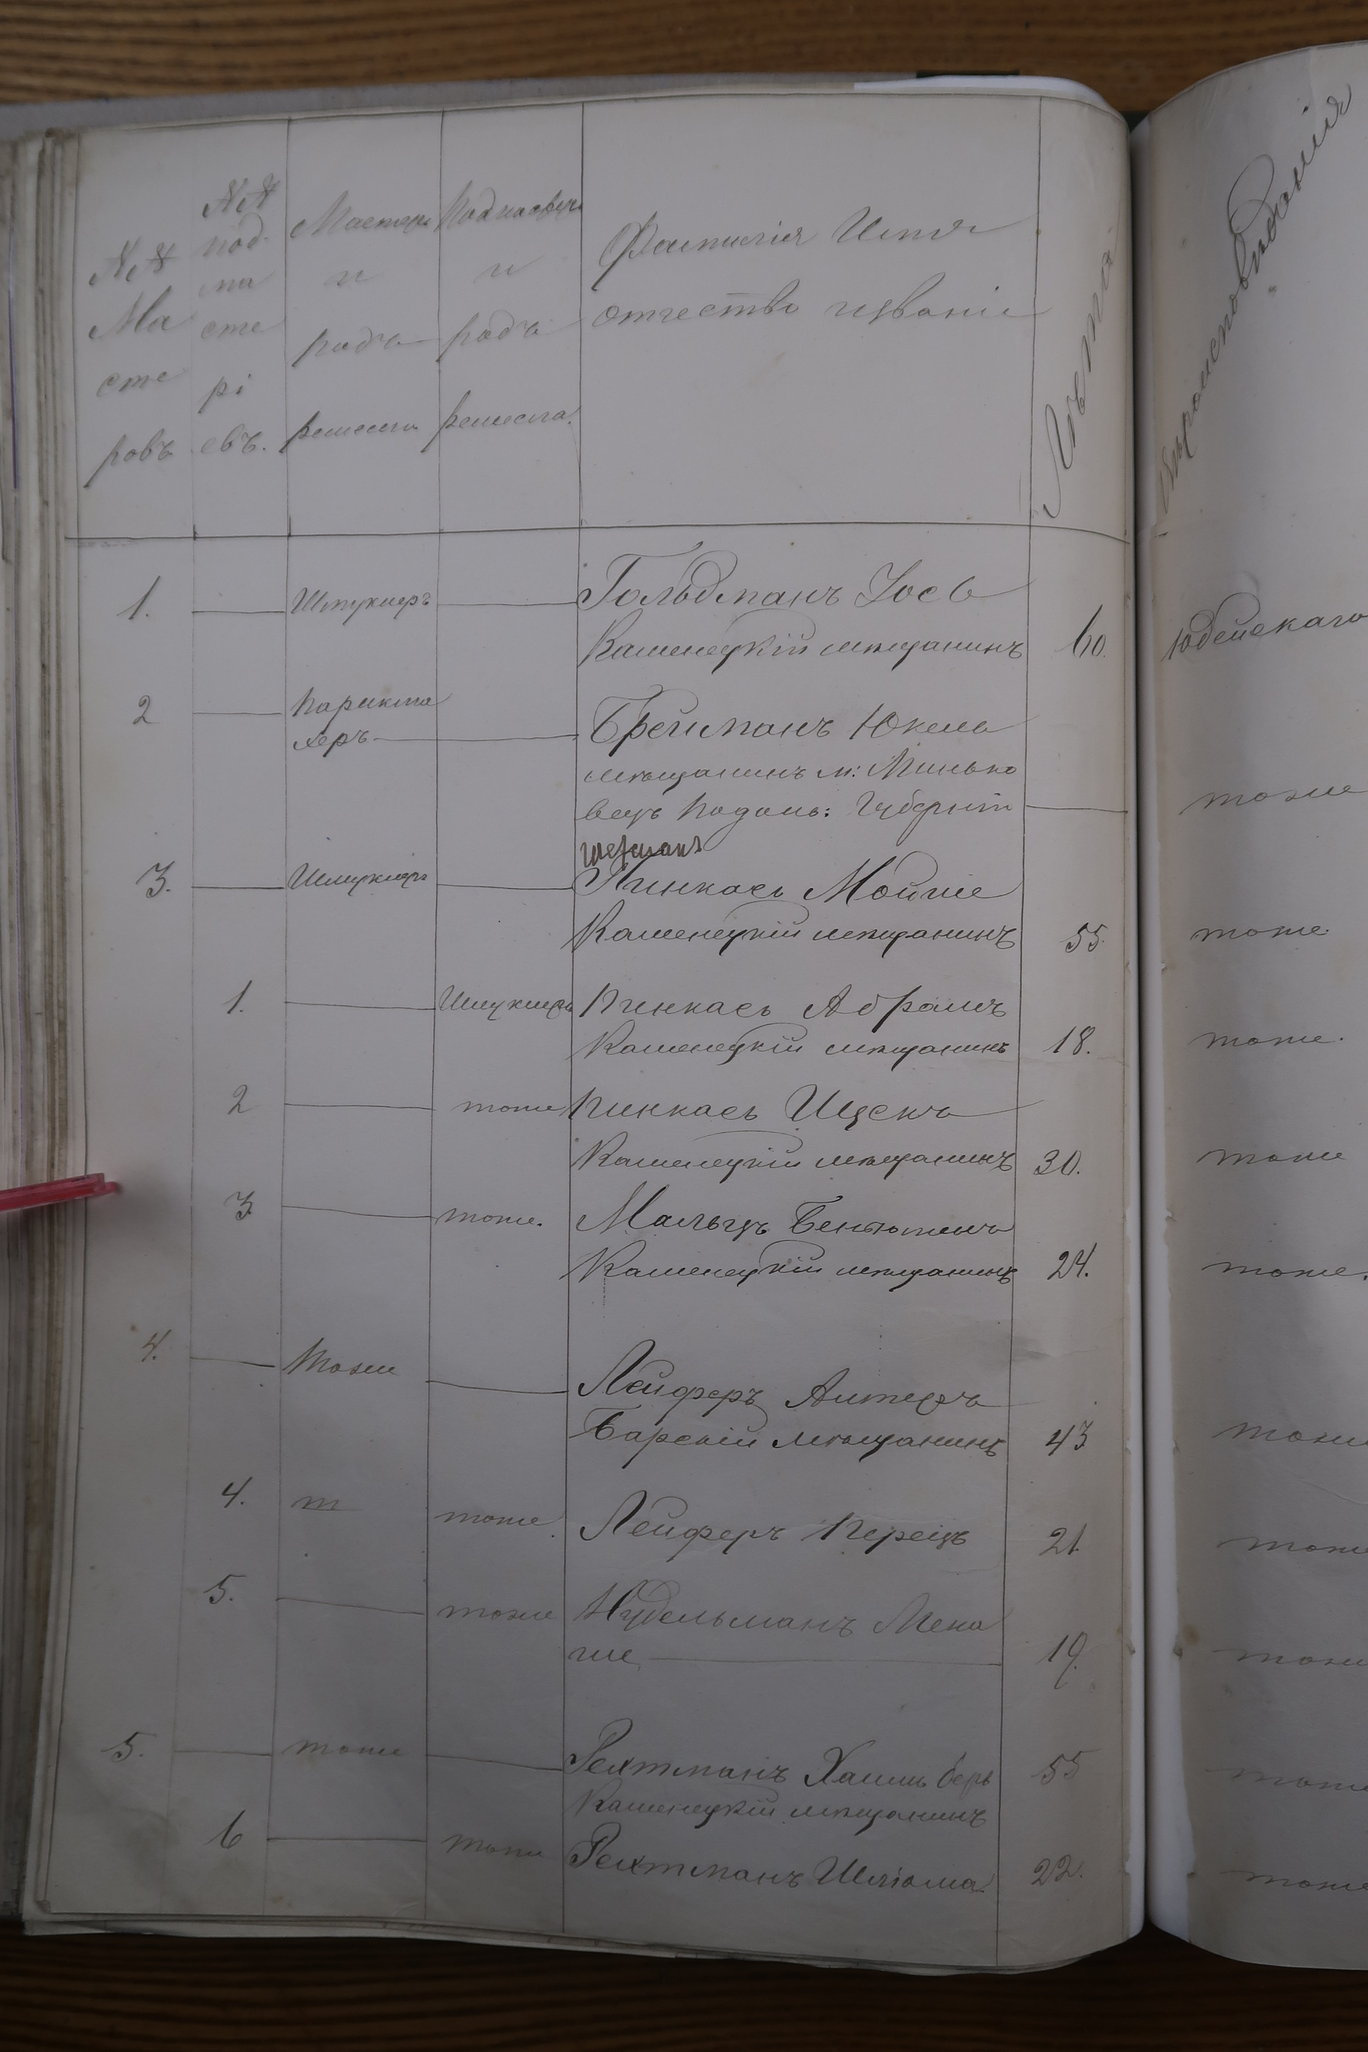 №№ Мастеровъ
№№ подмастеріевъ.
Мастера и родъ ремесла
Подмастерья и родъ ремесла.
Фамилія Имя
отчество и званіе
Лѣта
Вѣроисповѣданія
1. Штукмеръ Гольдманъ Іось
Каменецкій мѣщанинъ 60. Іюдейскаго
2 Парикма
херъ Брейманъ Юкель
мѣщанинъ м: Минько
вецъ Подоль: Губерніи тоже
3. Шмуклеръ Пинкась Мойше
Каменецкій мѣщанинъ 55. тоже
1. Шмуклеръ Пинкась Абрамъ
Каменецкій мѣщанинъ 18. тоже.
2 тоже Пинкась Ицекъ
Каменецкій мѣщанинъ 30. тоже
3 тоже. Мальцъ Беньюминъ
Каменецкій мѣщанинъ 24. тоже.
4. Тоже Лейферъ Алтеръ
Барскій мѣщанинъ 43 тоже
4. т тоже. Лейферъ Перецъ 21 тоже
5. тоже Нудельманъ Мена
ше 19. тоже
5. тоже Рехтманъ Хаимъ Беръ 55 тоже
Каменецкій мѣщанинъ
6 тоже Рехтманъ Шліома 22. тоже